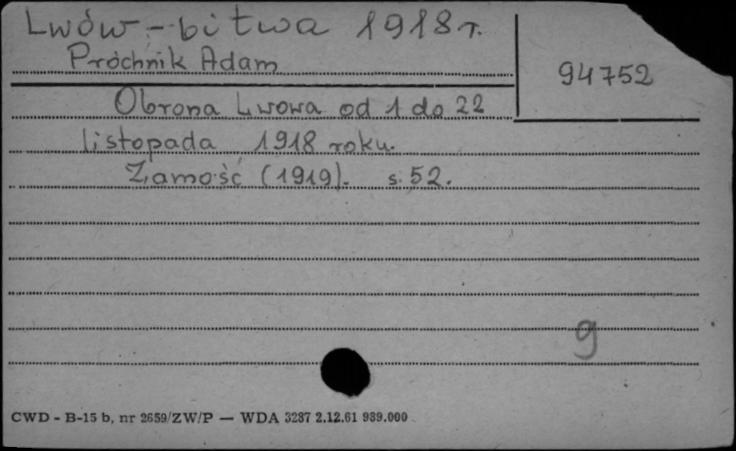 Lwów - bitwa 1918 r.
Próchnik Adam
94752
Obrona Lwowa od 1 do 22
listopada 1918 roku.
Zamość (1919). s. 52.
9
CWD - B-15 b, nr 2659/ZW/P — WDA 3287 2.12.61 989.000